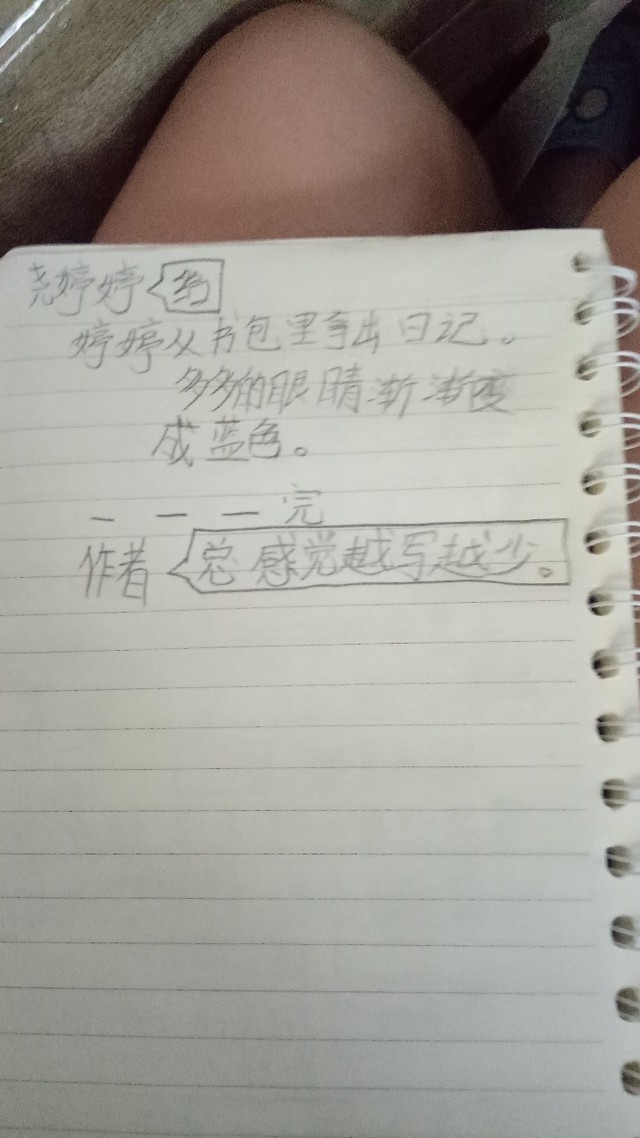 尧婷婷 约
婷婷从书包里拿出日记。
多多的眼睛渐渐变
成蓝色。
— — — 完
作者 总感觉越写越少。